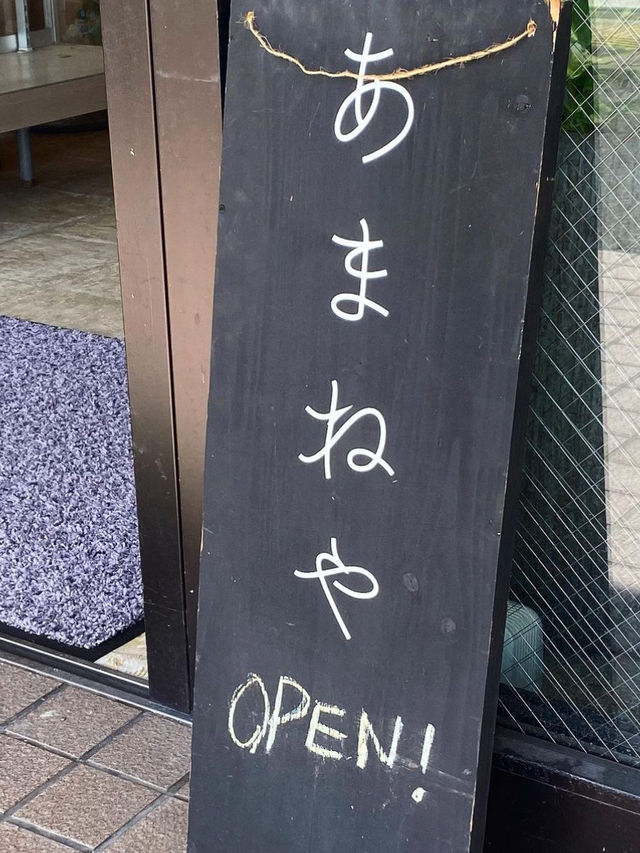 あまねや
OPEN!